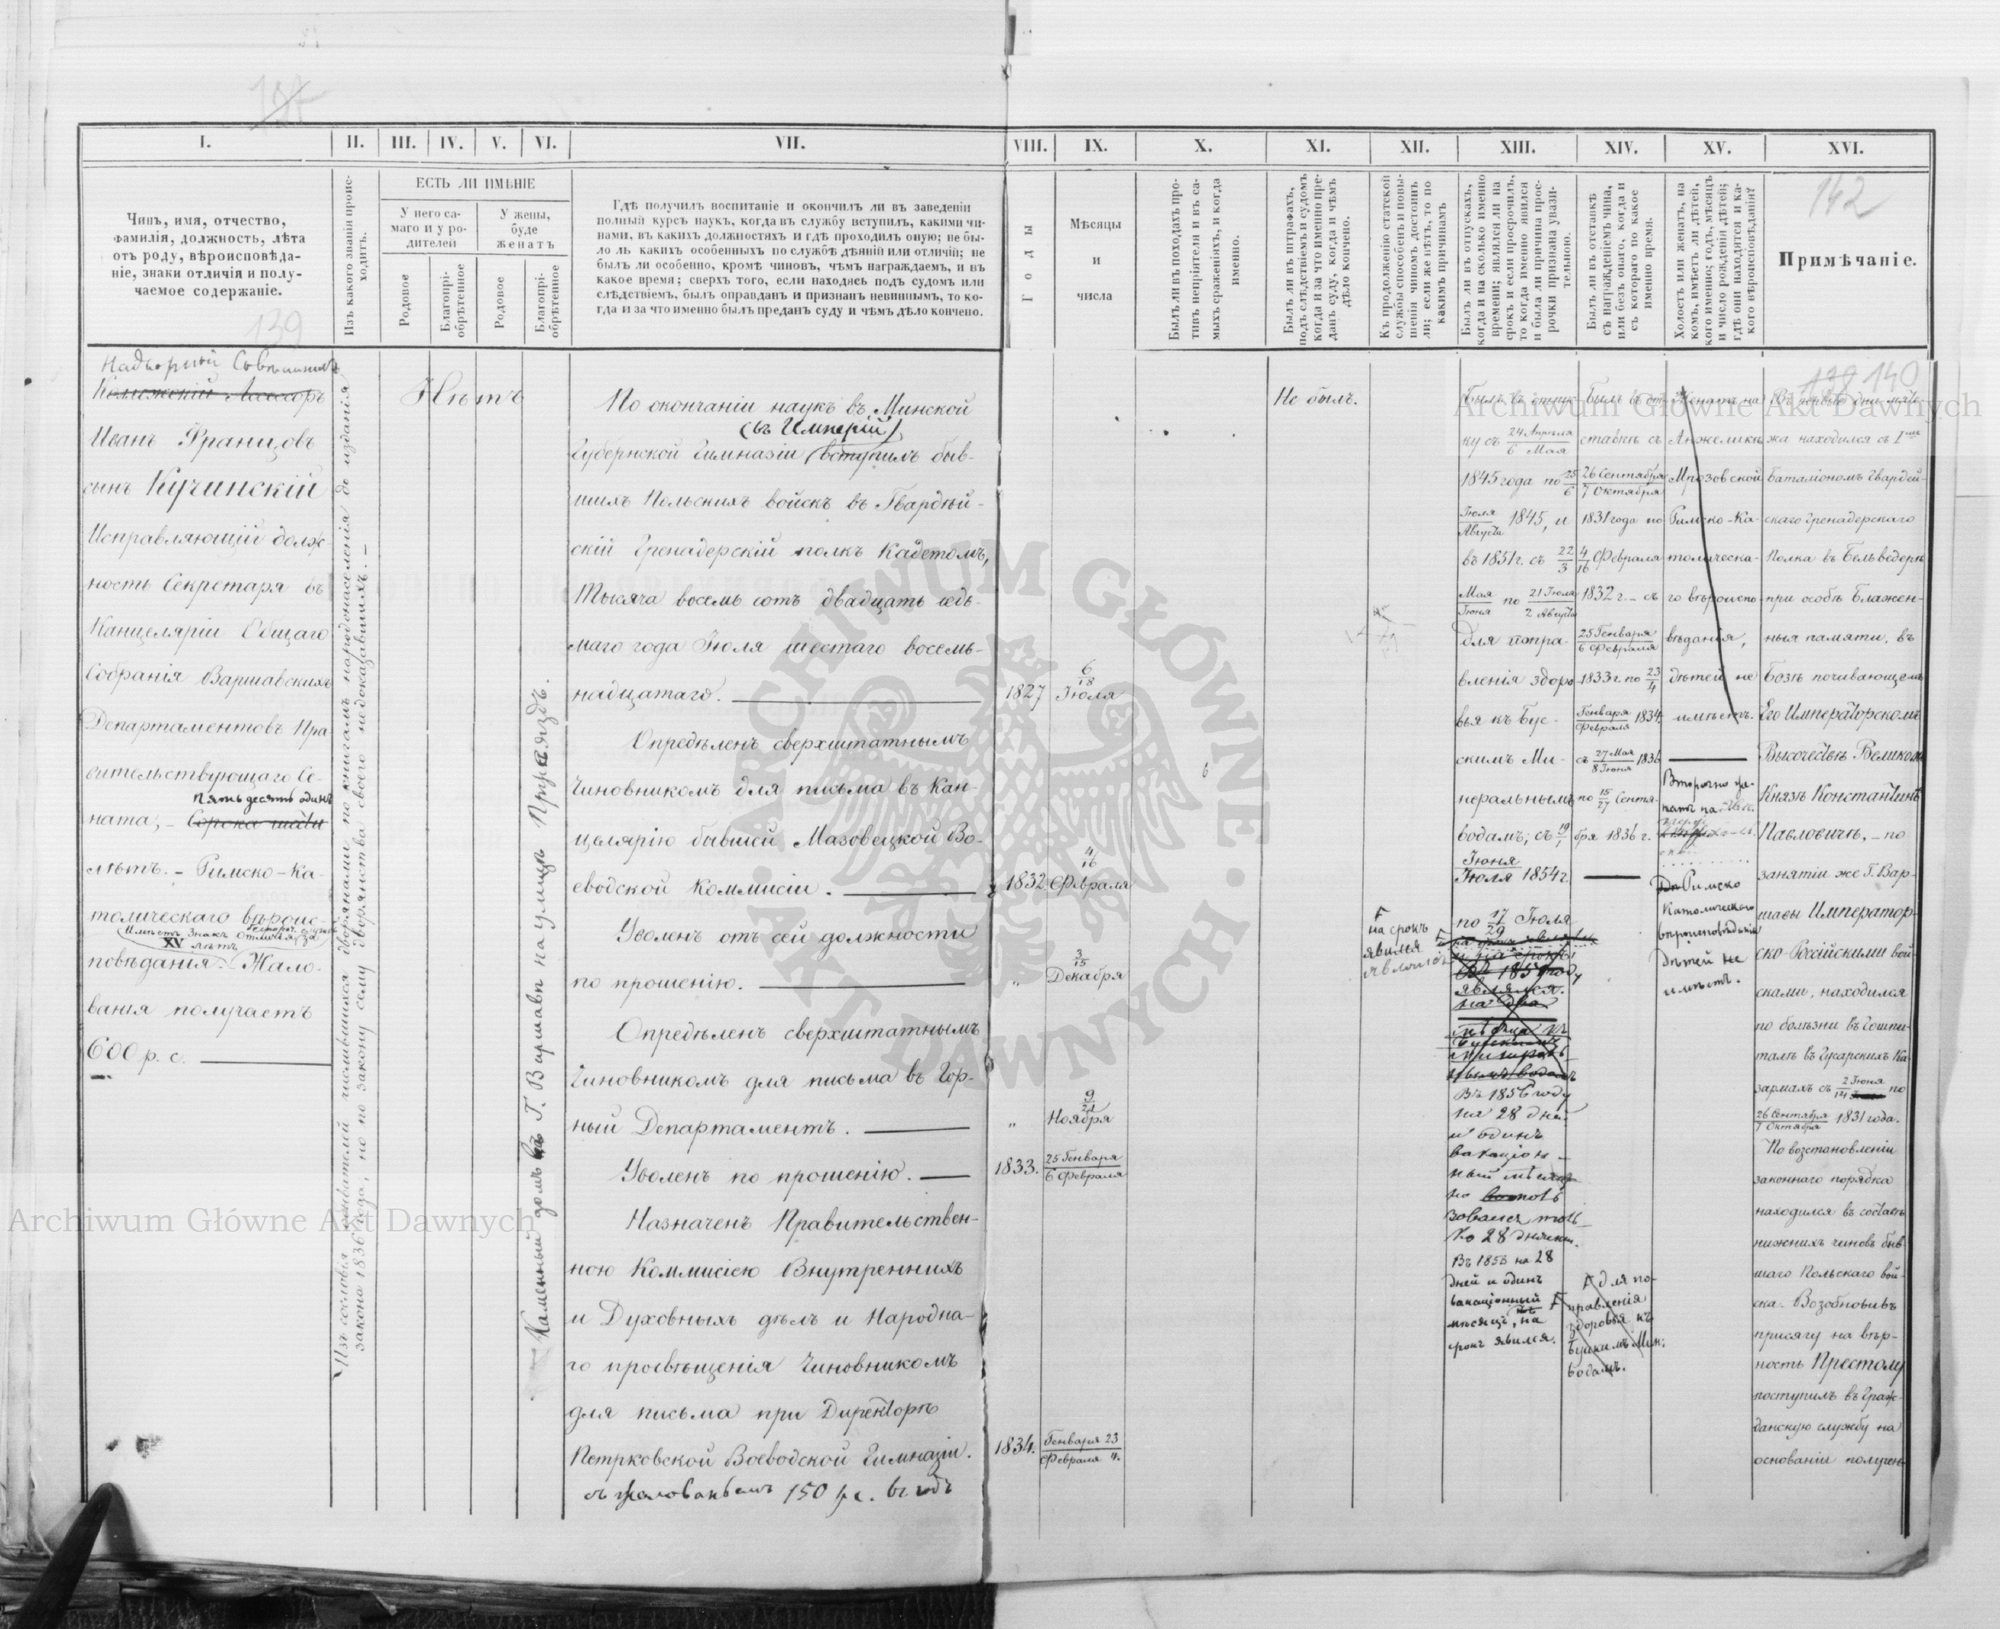 142
139
138 140
I.
II.
III.
IV.
V.
VI.
VII.
VIII.
IX.
X.
XI.
XII.
XIII.
XIV.
XV.
XVI.
Чинъ, имя, отчество,
фамилія, должность, лѣта
отъ роду, вѣроисповѣда-
ніе, знаки отличія и полу-
чаемое содержаніе.
Изъ какого званія проис-
ходитъ.
ЕСТЬ ЛИ ИМѢНІЕ
У него са-
маго и у ро-
дителей
У жены,
буде
женатъ
Родовое
Благопрі-
обрѣтенное
Родовое
Благопрі-
обрѣтенное
Гдѣ получилъ воспитаніе и окончилъ ли въ заведеніи
полный курсъ наукъ, когда въ службу вступилъ, какими чи-
нами, въ какихъ должностяхъ и гдѣ проходилъ оную; не бы-
ло ль какихъ особенныхъ по службѣ дѣяній или отличій; не
былъ ли особенно, кромѣ чиновъ, чѣмъ награждаемъ, и въ
какое время; сверхъ того, если находясь подъ судомъ или
слѣдствіемъ, былъ оправданъ и признанъ невиннымъ, то ко-
гда и за что именно былъ преданъ суду и чѣмъ дѣло кончено.
Годы
Мѣсяцы
и
числа
Былъ ли въ походахъ про-
тивъ непріятеля и въ са-
мыхъ сраженіяхъ, и когда
именно.
Былъ ли въ штрафахъ,
подъ слѣдствіемъ и судомъ
когда и за что именно пре-
данъ суду, когда и чѣмъ
дѣло кончено.
Къ продолженію статской
службы способенъ и повы-
шенія чиномъ достоинъ
ли; если же нѣтъ, то по
какимъ причинамъ
Былъ ли въ отпускахъ,
когда и на сколько именно
времени; являлся ли на
срокъ и если просрочилъ,
то когда именно явился
и была ли причина прос-
рочки признана уважи-
тельною.
Былъ ли въ отставкѣ
съ награжденіемъ чина,
или безъ онаго, когда и
съ котораго по какое
именно время.
Холостъ или женатъ, на
комъ, имѣетъ ли дѣтей,
кого именно; годъ, мѣсяцъ
и число рожденія дѣтей;
гдѣ они находятся и ка-
кого вѣроисповѣданія?
Примѣчаніе.
Надворный Совѣтникъ
Коллежскій Ассесоръ
Иванъ Францовъ
сынъ Кучинскій
Исправляющій долж-
ность Секретаря въ
Канцеляріи Общаго
Собранія Варшавскихъ
Департаментовъ Пра
вительствующаго Се-
пятьдесятъ одинъ
ната,
лѣтъ. – Римско-Ка-
толическаго вѣроис-
XV лѣтъ
повѣданія. – Жало-
ванія получаетъ
600 р. с.
Нѣтъ
Каменный домъ въ Г. Варшавѣ на улицѣ
По окончаніи наукъ въ Минской
(въ Имперіи)
Губернской Гимназіи вступилъ быв-
шихъ Польскихъ войскъ въ Гвардей-
скій Гренадерскій полкъ Кадетомъ,
Тысяча восемь сотъ двадцать седь-
маго года Іюля шестаго восемь-
надцатаго.
1827
6/18 Іюля
Опредѣленъ сверхштатнымъ
Чиновникомъ для письма въ Кан-
целярію бывшей Мазовецкой Во-
еводской Коммисіи.
1832
4/16 Февраля
Уволенъ отъ сей должности
по прошенію.
"
3/15 Декабря
Опредѣленъ сверхштатнымъ
Чиновникомъ для письма въ Гор-
ный Департаментъ.
"
9/21 Ноября
Уволенъ по прошенію.
1833.
25 Генваря
6 Февраля
Назначенъ Правительствен-
ною Коммисіею Внутреннихъ
и Духовныхъ дѣлъ и Народна-
го просвѣщенія Чиновникомъ
для письма при Директорѣ
Петрковской Воеводской Гимназіи.
съ жалованьемъ 150 р.с. въ годъ
1834.
Генваря 23
Февраля 4.
Не былъ.
на срокъ
явился
Былъ въ отпус-
ку съ 24 Апрѣля / 6 Мая
1845 года по 25/6
Іюля / Августа 1845, и
въ 1851 г. съ 22/3
Мая / Іюня по 21 Іюля / 2 Августа
для попра-
вленія здоро-
вья къ Бус-
скимъ Ми-
неральнымъ
водамъ; съ 19/1
Іюня / Іюля 1854 г.
по 17/29 Іюля
Въ 1856 году
на 28 дней
и одинъ
вакаціон-
ный мѣсяцъ
Въ 1858 на 28
дней и одинъ
вакаціонный
мѣсяцъ, на
срокъ явился.
Былъ въ от-
ставкѣ съ
26 Сентября / 7 Октября
1831 года по
4/16 Февраля
1832 г. – съ
25 Генваря / 6 Февраля
1833 г. по 23/4
Генваря / Февраля 1834.
съ 27 Мая / 8 Іюня 1836
по 15/27 Сентя-
бря 1836 г.
для по-
правленія
здоровья къ
Бускимъ Мин:
водамъ.
Женатъ на
Анжеликѣ
Мрозовской
Римско-Ка-
толическа-
го вѣроиспо-
вѣданія,
дѣтей не
имѣетъ.
Вторично же-
натъ на
Римско
Католическаго
вѣроисповѣданія
дѣтей не
имѣетъ.
Въ первые дни мяте-
жа находился съ 1ымъ
баталіономъ Гвардей-
скаго Гренадерскаго
Полка въ Бельведерѣ
при особѣ Блажен-
ныя памяти, въ
Бозѣ почивающемъ
Его Императорскомъ
Высочествѣ Великомъ
Князѣ Константинѣ
Павловичѣ, – по
занятіи же Г. Вар-
шавы Император-
ско-Россійскими вой-
сками, находился
по болѣзни въ Гошпи-
талѣ въ Гусарскихъ Ка-
зармахъ съ 2/14 Іюня по
26 Сентября / 7 Октября 1831 года.
По возстановленіи
законнаго порядка
находился въ составѣ
нижнихъ чиновъ быв
шаго Польскаго вой-
ска. Возобновивъ
присягу на вѣр-
ность Престолу
поступилъ въ Граж-
данскую службу на
основаніи получен-
Archiwum Główne Akt Dawnych
Archiwum Główne Akt Dawnych
ARCHIWUM GŁÓWNE AKT DAWNYCH